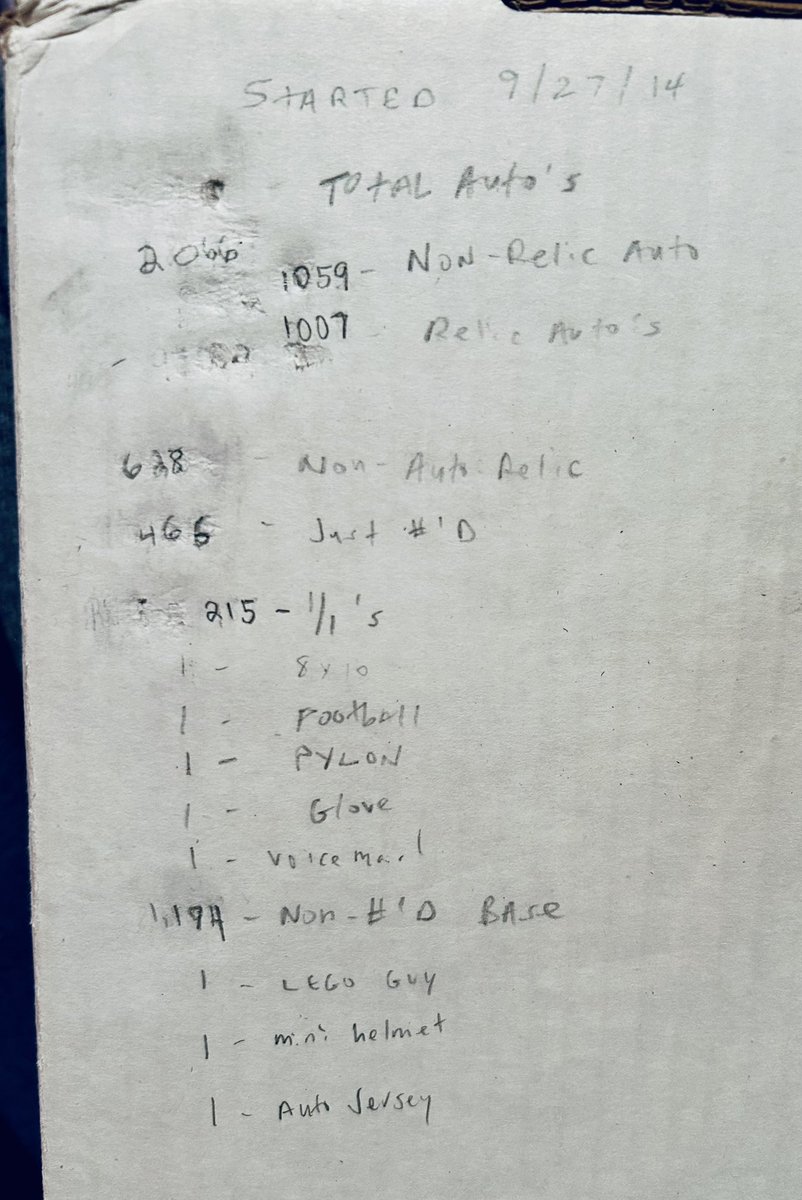 STARTED 9/27/14
TOTAL Auto's
2066
1059 - NON-Relic Auto
1007 - Relic Auto's
638 - Non-Auto Relic
466 - Just #'D
215 - 1/1's
1 - 8x10
1 - Football
1 - PYLON
1 - Glove
1 - Voicemail
1,194 - Non-#'D BAse
1 - LEGO GUY
1 - mini helmet
1 - Auto Jersey